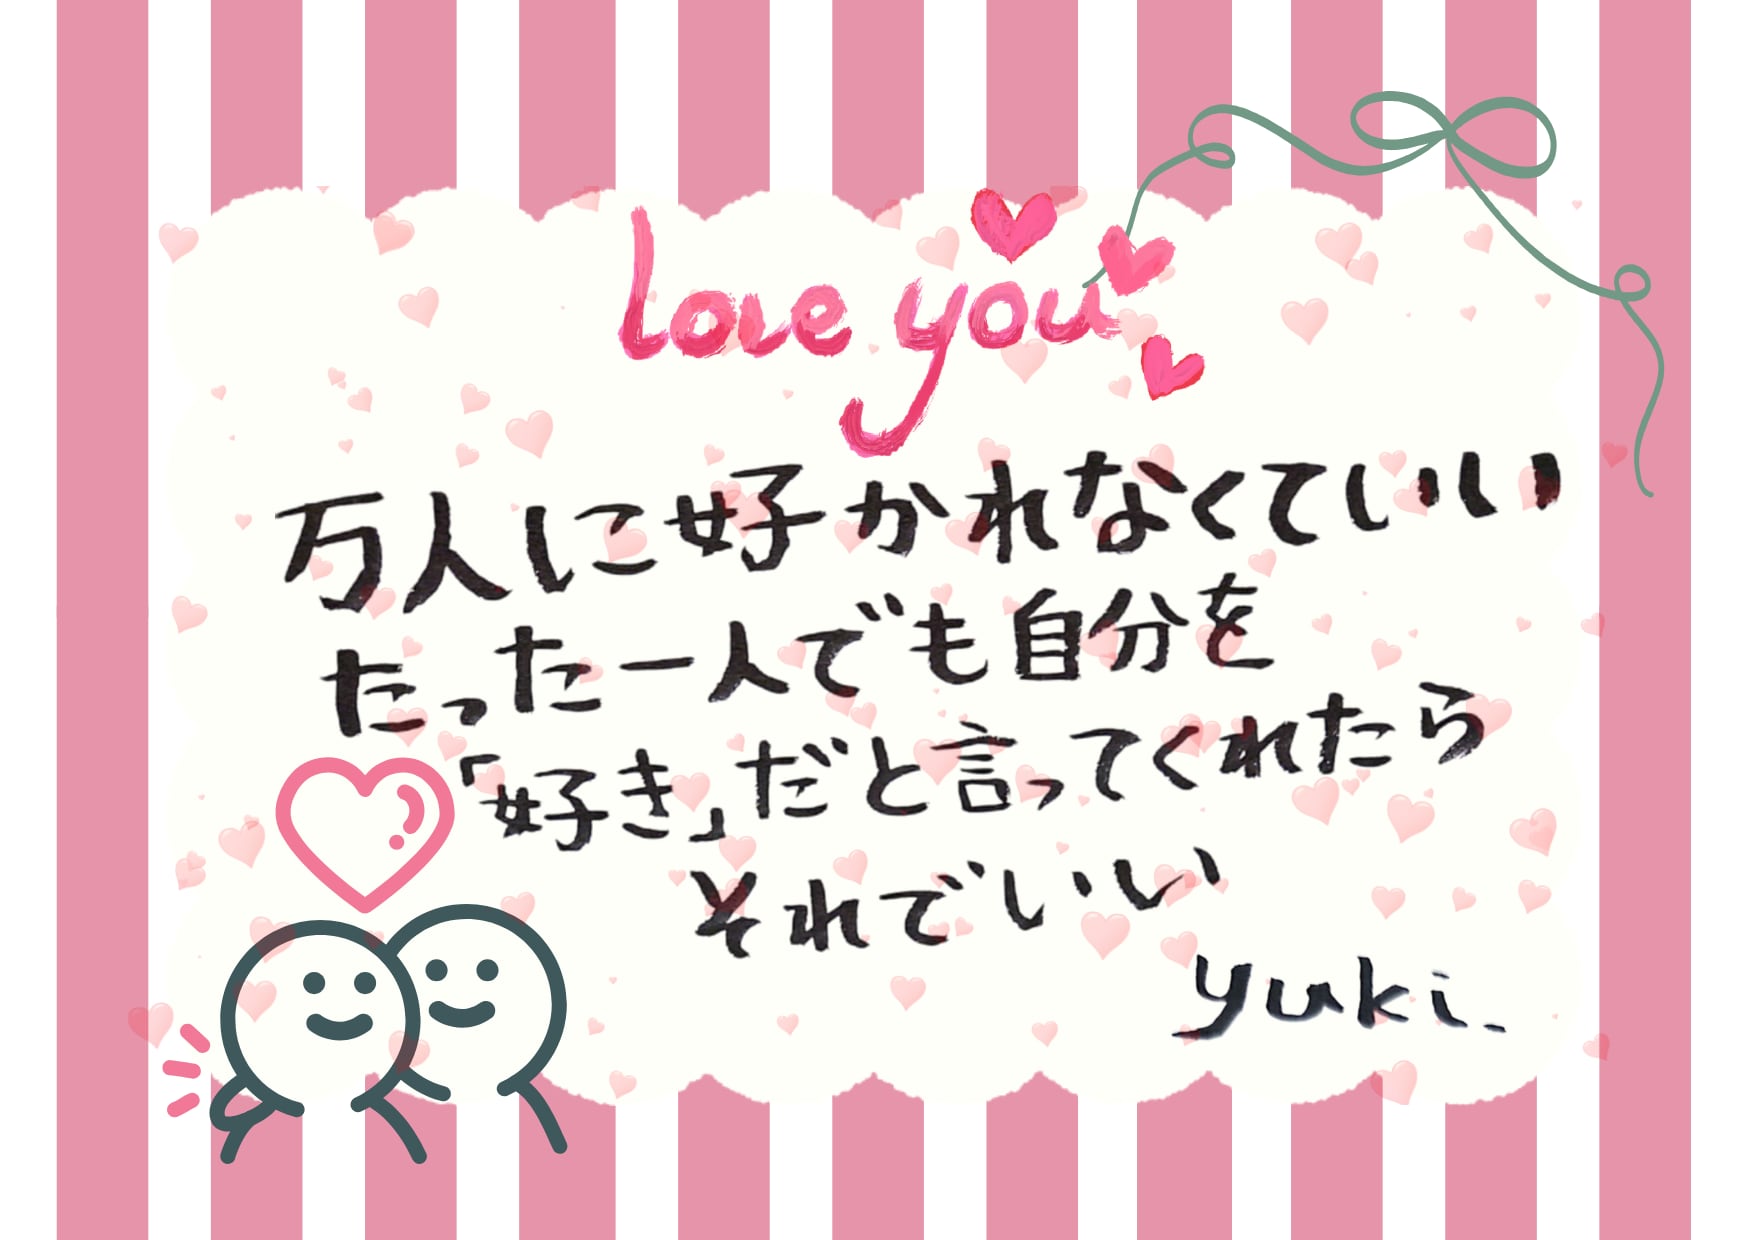 love you
万人に好かれなくていい
たった一人でも自分を
「好き」だと言ってくれたら
それでいい
yuki.